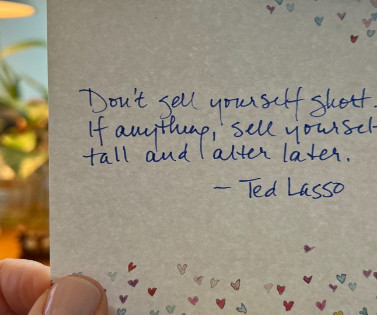 Don't sell yourself short.
If anything, sell yoursel
tall and alter later.
- Ted Lasso